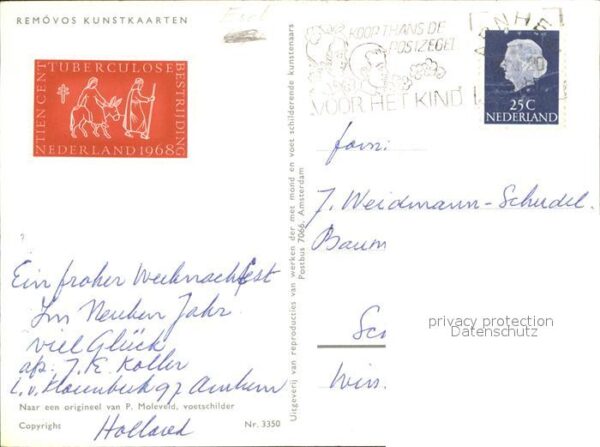 REMÓVOS KUNSTKAARTEN
Esel
TIEN CENT
TUBERCULOSE
BESTRIJDING
NEDERLAND 1968
KOOP THANS DE
POSTZEGEL
VOOR HET KIND
ARNHEM
25 C
NEDERLAND
Uitgeverij van reproducties van werken der met mond en voet schilderende kunstenaars
Postbus 7066, Amsterdam
?
Ein froher Weihnachtsfest
Im Neuken Jahr
viel Glück
J. E. Koller
Arnhem
Holland
Fam:
J. Weidmann-Schudel.
Baum
Sc
privacy protection
Datenschutz
Win.
Naar een origineel van P. Moleveld, voetschilder
Copyright
Nr. 3350